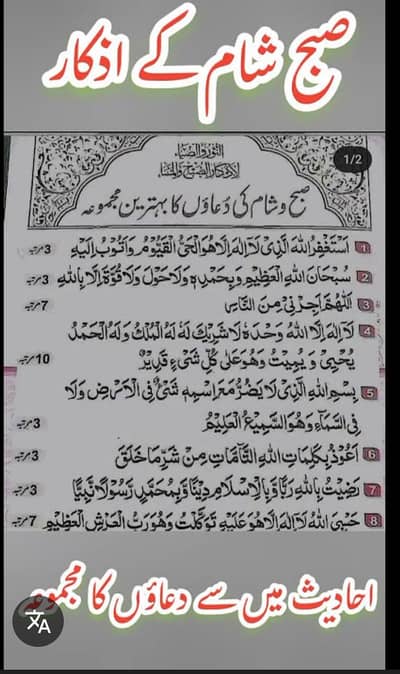 صبح شام کے اذکار
1/2
النور والضياء
لأذكار الصبح والمساء
صبح و شام کی دعاؤں کا بہترین مجموعہ
1 اَسْتَغْفِرُ اللهَ الَّذِیْ لَآ اِلٰهَ اِلَّا هُوَ الْحَیُّ الْقَیُّوْمُ وَاَتُوْبُ اِلَیْهِ 3 مرتبہ
2 سُبْحَانَ اللهِ الْعَظِیْمِ وَبِحَمْدِهٖ وَلَا حَوْلَ وَلَا قُوَّةَ اِلَّا بِاللهِ 3 مرتبہ
3 اَللّٰهُمَّ اَجِرْنِیْ مِنَ النَّارِ 7 مرتبہ
4 لَآ اِلٰهَ اِلَّا اللهُ وَحْدَهٗ لَا شَرِیْكَ لَهٗ لَهُ الْمُلْكُ وَلَهُ الْحَمْدُ
یُحْیِیْ وَیُمِیْتُ وَهُوَ عَلٰی كُلِّ شَیْءٍ قَدِیْرٌ 10 مرتبہ
5 بِسْمِ اللهِ الَّذِیْ لَا یَضُرُّ مَعَ اسْمِهٖ شَیْءٌ فِی الْاَرْضِ وَلَا
فِی السَّمَآءِ وَهُوَ السَّمِیْعُ الْعَلِیْمُ 3 مرتبہ
6 اَعُوْذُ بِكَلِمَاتِ اللهِ التَّآمَّاتِ مِنْ شَرِّ مَا خَلَقَ 3 مرتبہ
7 رَضِیْتُ بِاللهِ رَبًّا وَّبِالْاِسْلَامِ دِیْنًا وَّبِمُحَمَّدٍ رَّسُوْلًا نَّبِیًّا 3 مرتبہ
8 حَسْبِیَ اللهُ لَآ اِلٰهَ اِلَّا هُوَ عَلَیْهِ تَوَكَّلْتُ وَهُوَ رَبُّ الْعَرْشِ الْعَظِیْمِ 7 مرتبہ
احادیث میں سے دعاؤں کا مجموعہ